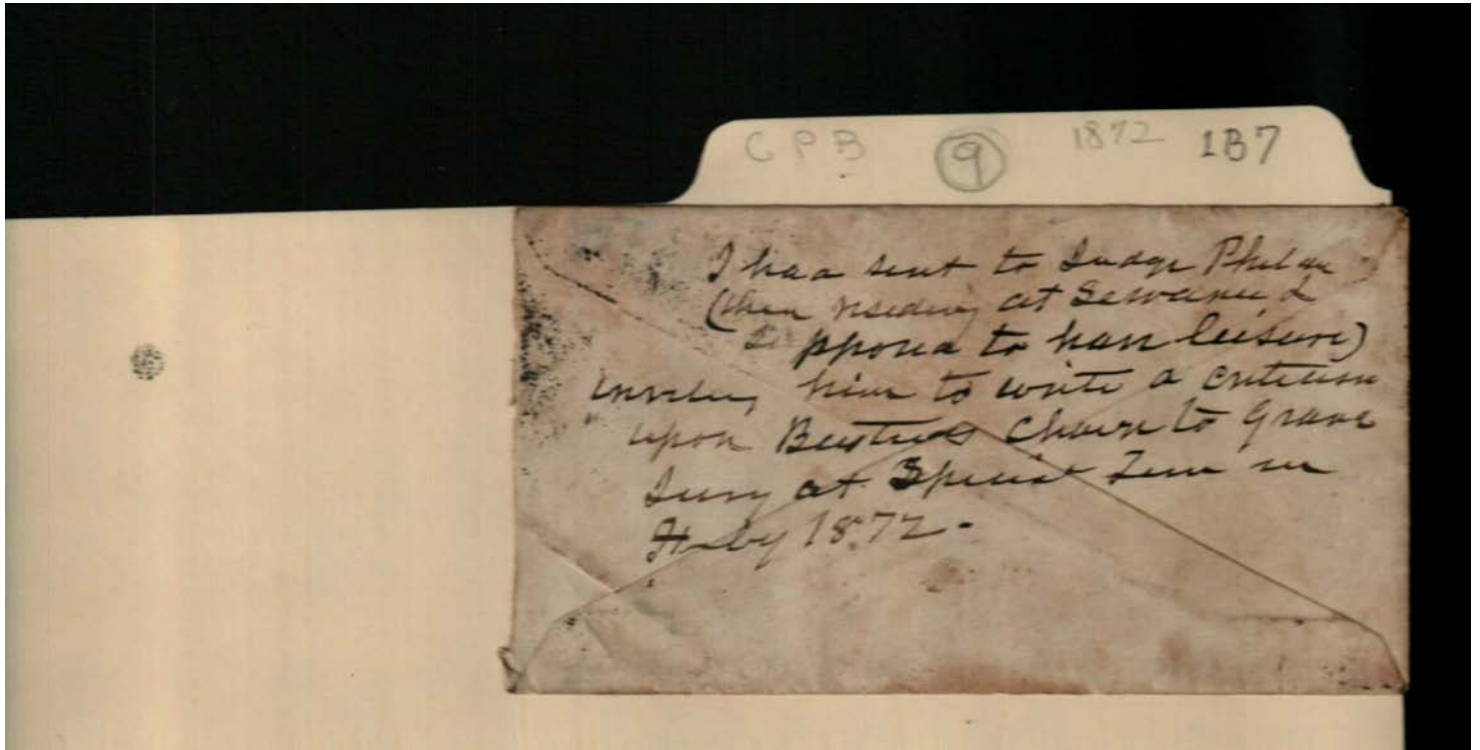 CPB 9 1872 1B7
I had sent to Judge Phelan
(then residing at Sewanee &
supposed to have leisure)
inviting him to write a criticism
upon Busteed's Charge to Grand
Jury at Special Term in
1872 -